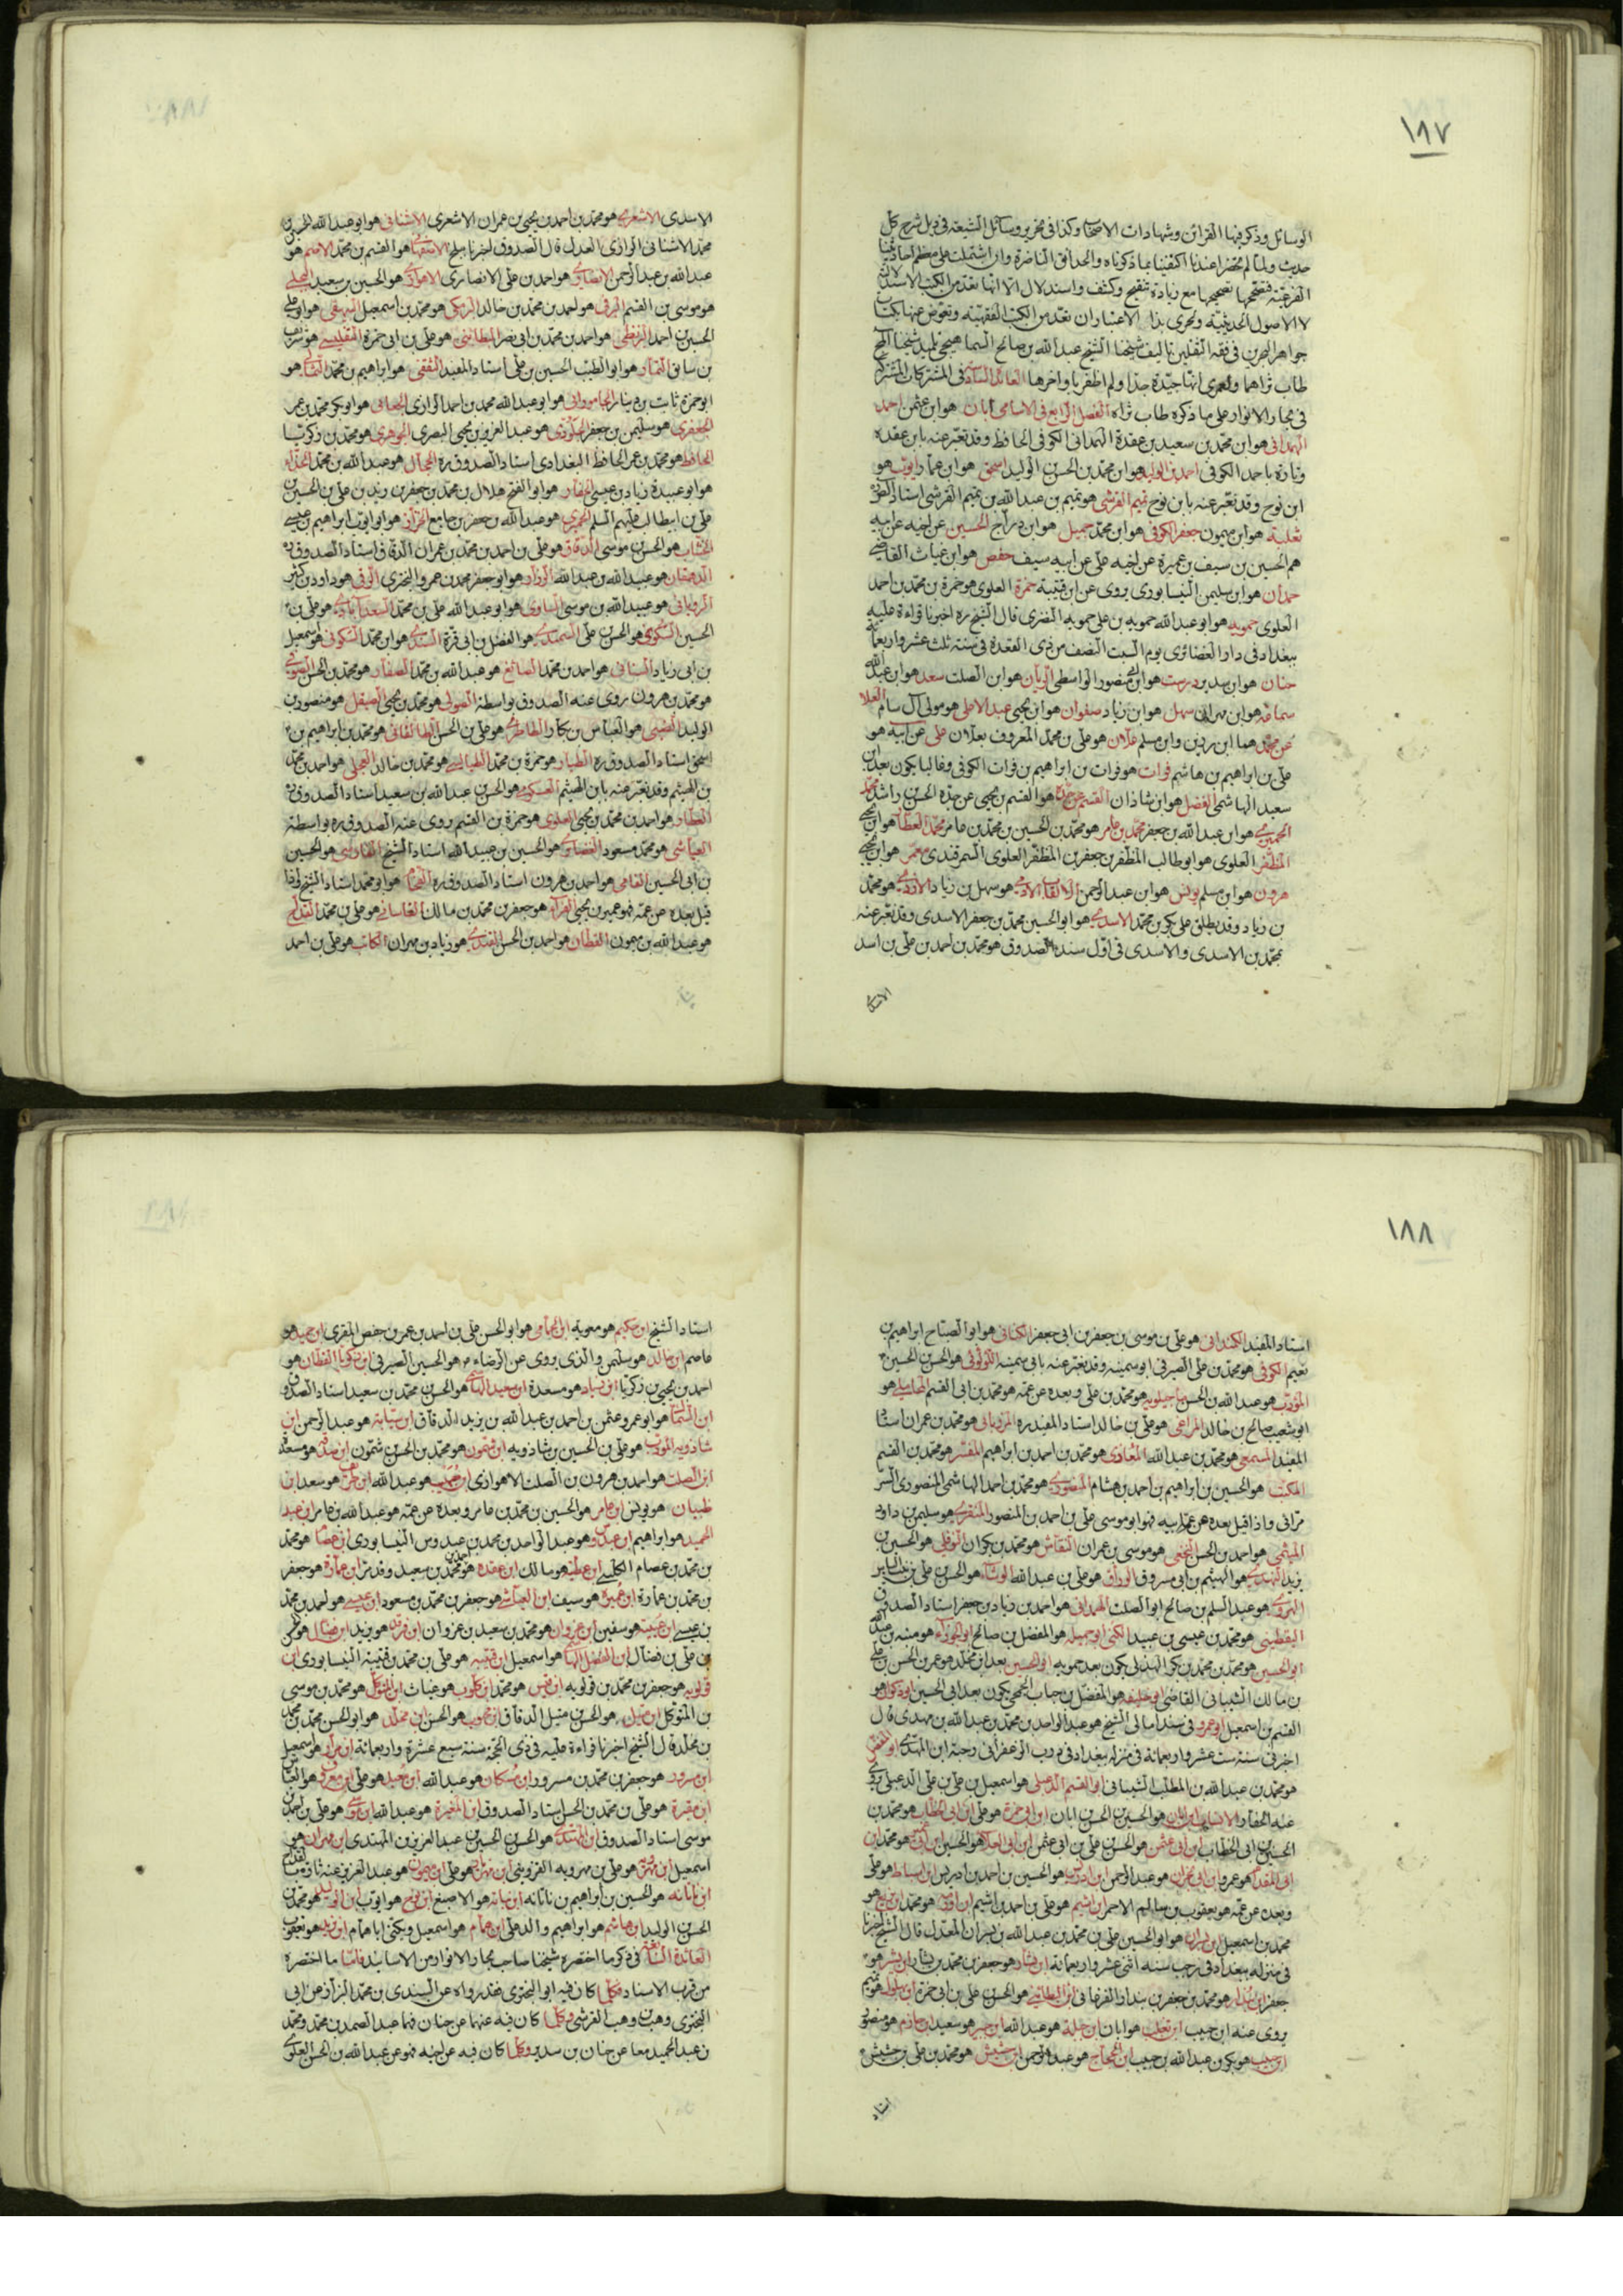 ١٨٧
الوسائل وذكر فيها القرائن وشهادات الاصحاب وكذا فى تحرير وسائل الشيعة فى ذيل شرح كل
حديث ولما لم تحضرا عندنا اكتفينا بما ذكرناه والحدائق الناضرة وان اشتملت على معظم احاديثنا
الفرعية فتصحيحها مع زيادة تنقيح وكشف واستدلال الا انها تعد من الكتب الاستدلالية
لا الاصول الحديثية ولحرى بذا الاعتبار ان تعد من الكتب الفقهية ونعوض عنها بكتاب
جواهر البحرين فى فقه الثقلين تاليف شيخنا الشيخ عبد الله بن صالح السماهيجى تلميذ شيخنا
طاب ثراهما ولعمرى انها جيدة جدا ولم اظفر باواخرها العائدة السادسة فى المشتركات المشترك
فى بحار الانوار على ما ذكره طاب ثراه الفصل الرابع فى الاسامى ابان هو ابن عثمن احمد
الهمدانى هو ابن محمد بن سعيد بن عقدة الهمدانى الكوفى الحافظ وقد نعبر عنه بابن عقده
وتارة باحمد الكوفى احمد بن الوليد هو ابن محمد بن الحسن الوليد اسحق هو ابن عمار ايوب هو
ابن نوح وقد نعبر عنه بابن نوح تميم القرشى هو تميم بن عبد الله بن تميم القرشى استاد الصدوق ره
ثعلبة هو ابن ميمون جعفر الكوفى هو ابن محمد جميل هو ابن دراج الحسين عن اخيه عن ابيه
هم الحسين بن سيف بن عميرة عن اخيه على عن ابيه سيف حفص هو ابن غياث القاضى
حمدان هو ابن سليمن النيسابورى يروى عن ابن قتيبة حمزة العلوى هو حمزة بن محمد بن احمد
العلوى حمويه هو ابو عبد الله حمويه بن على حمويه النضرى قال الشيخ ره اخبرنا قراءة عليه
ببغداد فى دار الغضائرى يوم السبت النصف من ذى القعدة فى سنة ثلث عشر واربعمائة
حنان هو ابن سدير درست هو ابن ابى منصور الواسطى الريان هو ابن الصلت سعد هو ابن عبد الله
سماعة هو ابن مهران سهل هو ابن زياد صفوان هو ابن يحيى عبد الاعلى هو مولى آل سام العلا
عن محمد هما ابن رزين وابن مسلم علان هو على بن محمد المعروف بعلان على عن ابيه هو
على بن ابراهيم بن هاشم فرات هو فرات بن ابراهيم بن فرات الكوفى وغالبا يكون بعد ابن
سعيد الهاشمى الفضل هو ابن شاذان القسم عن جده هو القسم بن يحيى عن جده الحسن راشد محمد
الحميرى هو ابن عبد الله بن جعفر محمد بن عامر هو محمد بن الحسين بن محمد بن عامر محمد العطار هو ابن يحيى
المظفر العلوى هو ابو طالب المظفر بن جعفر بن المظفر العلوى السمرقندى معمر هو ابن يحيى
هرون هو ابن مسلم يونس هو ابن عبد الرحمن الالقاب الادمى هو سهل بن زياد الازدى هو محمد
بن زياد وقد يطلق على بكر بن محمد الاسدى هو ابو الحسين محمد بن جعفر الاسدى وقد نعبر عنه
بمحمد بن الاسدى والاسدى فى اول سند الصدوق هو محمد بن احمد بن على بن اسد
الاسدى
الاسدى الاشعرى هو محمد بن احمد بن يحيى بن عمران الاشعرى الاشنانى هو ابو عبد الله الحسين بن
محمد الاشنانى الرازى العدل قال الصدوق اخبرنا ببلخ الاصفهانى هو القسم بن محمد الاصم هو
عبد الله بن عبد الرحمن الانصارى هو احمد بن على الانصارى الاهوازى هو الحسين بن سعيد البجلى
هو موسى بن القسم البرقى هو احمد بن محمد بن خالد البرمكى هو محمد بن اسمعيل البيهقى هو ابو على
الحسين بن احمد البزنطى هو احمد بن محمد بن ابى نصر البطائنى هو على بن ابى حمزة التفليسى هو شريف
بن سابق التمار هو ابو الطيب الحسين بن على استاد المفيد الثقفى هو ابراهيم بن محمد الثمالى هو
ابو حمزة ثابت بن دينار الجامورانى هو ابو عبد الله محمد بن احمد الرازى الجعابى هو ابو بكر محمد بن عمر
الجعفرى هو سليمن بن جعفر الجلودى هو عبد العزيز بن يحيى البصرى الجوهرى هو محمد بن زكريا
الحافظ هو محمد بن عمر الحافظ البغدادى استاد الصدوق ره الحجال هو عبد الله بن محمد الحذاء
هو ابو عبيدة زياد بن عيسى الحفار هو ابو الفتح هلال بن محمد بن جعفر بن زيد بن على بن الحسين بن
على بن ابيطالب عليهم السلم الحميرى هو عبد الله بن جعفر بن جامع الخزاز هو ابو ايوب ابراهيم بن عيسى
الخشاب هو الحسن بن موسى الدقاق هو على بن احمد بن محمد بن عمران الدقاق استاد الصدوق ره
الدهقان هو عبيد الله بن عبد الله الرزاز هو ابو جعفر محمد بن عمرو البخترى الرقى هو داود بن كثير
الرويانى هو عبيد الله بن موسى الساوى هو ابو عبد الله على بن محمد السعدآبادى هو على بن
الحسين السكرى هو الحسن بن على السمندى هو الفضل بن ابى قرة السندى هو ابن محمد السكونى هو اسمعيل
بن ابى زياد السنانى هو احمد بن محمد الصائغ هو عبد الله بن محمد الصفار هو محمد بن الحسن الصوفى
هو محمد بن هرون روى عنه الصدوق بواسطة الصولى هو محمد بن يحيى الصيقل هو منصور بن
الوليد الضبى هو العباس بن بكار الطاطرى هو على بن الحسن الطالقانى هو محمد بن ابراهيم بن
اسحق استاد الصدوق ره الطيار هو حمزة بن محمد الطيالسى هو محمد بن خالد العجلى هو احمد بن محمد
بن الهيثم وقد نعبر عنه بابن الهيثم العسكرى هو الحسن بن عبد الله بن سعيد استاد الصدوق ره
العطار هو احمد بن محمد بن يحيى العلوى هو حمزة بن القسم روى عنه الصدوق ره بواسطة
العياشى هو محمد مسعود الغضائرى هو الحسين بن عبيد الله استاد الشيخ الفارسى هو الحسين
بن ابى الحسين الفامى هو احمد بن هرون استاد الصدوق ره الفحام هو ابو محمد استاد الشيخ فاذا
قيل بعده عن عمه فهو عمر بن يحيى الفزارى هو جعفر بن محمد بن مالك القاسانى هو على بن محمد القداح
هو عبد الله بن ميمون القطان هو احمد بن الحسن القندى هو زياد بن مهران الكاتب هو على بن احمد
١٨٨
استاد المفيد الكمندانى هو على بن موسى بن جعفر بن ابى جعفر الكنانى هو ابو الصباح ابراهيم بن
نعيم الكوفى هو محمد بن على الصيرفى ابو سمينه وقد نعبر عنه بابى سمينة اللؤلؤى هو الحسن الحسين
المؤدب هو عبد الله بن الحسن ماجيلويه هو محمد بن على وبعده عن عمه هو محمد بن ابى القسم المحاملى هو
ابو شعيب صالح بن خالد المراغى هو على بن خالد استاد المفيد ره المرزبانى هو محمد بن عمران استاد
المفيد المسمعى هو محمد بن عبد الله المعاذى هو محمد بن احمد بن ابراهيم المفسر هو محمد بن القسم
المكتب هو الحسين بن ابراهيم بن احمد بن هشام المنصورى هو محمد بن احمد الهاشمى المنصورى السر
مرائى واذا قيل بعده عن عم ابيه فهو ابو موسى على بن احمد بن المنصور المنقرى هو سليمن داود
الميثمى هو احمد بن الحسن النخعى هو موسى بن عمران النقاش هو محمد بن بكران النوفلى هو الحسين بن
يزيد النهدى هو الهيثم بن ابى مسروق الوراق هو على بن عبد الله الوشاء هو الحسن بن على بن بنت الياس
الهروى هو عبد السلم بن صالح ابو الصلت الهمدانى هو احمد بن زياد بن جعفر استاد الصدوق
اليقطينى هو محمد بن عيسى بن عبيد الكنى ابو جميله هو المفضل بن صالح ابو الجوزاء هو منبه بن عبد الله
ابو الحسين هو محمد بن محمد بن بكر الهذلى يكون بعد حمويه ابو الحسين بعد ابن مخلد هو عمر بن الحسن بن على
بن مالك الشيبانى القاضى ابو خليفه هو المفضل بن حباب الجمحى يكون بعد ابى الحسين ابو ذكوان هو
القسم بن اسمعيل ابو عمرو فى سند امالى الشيخ هو عبد الواحد بن محمد بن عبد الله بن مهدى قال
اخبرنى سنة ست عشر واربعمائة فى منزله ببغداد فى درب الزعفرانى رحبة ابن المهدى ابو المفضل
هو محمد بن عبد الله بن المطلب الشيبانى ابو القسم الدعبلى هو اسمعيل بن على بن على الدعبلى يروى
عنه الحفار الابناء ابن ابان هو الحسين بن الحسن ابان ابن ابى حمزة هو على ابن ابى الخطاب هو محمد بن
الحسين بن ابى الخطاب ابن ابى عثمن هو الحسن بن على بن ابى عثمن ابن ابى العلا هو الحسين ابن ابى عمير هو محمد ابن
ابى المقدام هو عمرو ابن ابى نجران هو عبد الرحمن ابن ادريس هو الحسين بن احمد بن ادريس ابن اسباط هو على
وبعده عن عمه هو يعقوب بن سالم الاحمر ابن اشيم هو على بن احمد بن اشيم ابن اورمه هو محمد ابن بزيع هو
محمد بن اسمعيل ابن بشران هو ابو الحسين على بن محمد بن عبد الله بن بشران المعدل قال الشيخ اخبرنا
فى منزله ببغداد فى رجب سنة اثنى عشر واربعمائة ابن بشار هو جعفر بن محمد بن بشار ابن بشير هو
جعفر ابن بندار هو محمد بن جعفر بن بندار الفرغانى ابن البطائنى هو الحسن بن على بن ابى حمزة ابن بهلول هو تميم
يروى عنه ابن حبيب ابن تغلب هو ابان ابن جبلة هو عبد الله ابن جبير هو سعيد ابن حازم هو منصور
ابن حبيب هو بكر بن عبد الله بن حبيب ابن الحجاج هو عبد الرحمن ابن حشيش هو محمد بن على بن حشيش
استاد
استاد الشيخ ابن حكيم هو معوية ابن الحمامى هو ابو الحسن على بن احمد بن عمر بن حفص المقرى ابن حميد هو
عاصم ابن خالد هو سليمن والذى يروى عن الرضا ع م هو الحسين الصيرفى ابن زكريا القطان هو
احمد بن يحيى بن زكريا ابن زياد هو مسعدة ابن سعيد الهاشمى هو الحسن بن محمد بن سعيد استاد الصدوق
ابن السماك هو ابو عمرو عثمن بن احمد بن عبد الله بن يزيد الدقاق ابن سيابة هو عبد الرحمن ابن
شاذويه المؤدب هو على بن الحسين بن شاذويه ابن شمون هو محمد بن الحسن بن شمون ابن صدقه هو مسعدة
ابن الصلت هو احمد بن هرون بن الصلت الاهوازى ابن صهيب هو عبد الله ابن طريف هو سعد ابن
ظبيان هو يونس ابن عامر هو الحسين بن محمد بن عامر وبعده عن عمه هو عبد الله بن عامر ابن عبد
الحميد هو ابراهيم ابن عبدوس هو عبد الواحد بن محمد بن عبدوس النيسابورى ابن عصام هو محمد
بن محمد بن عصام الكلينى ابن عطيه هو مالك ابن عقده هو احمد بن محمد بن سعيد وقد مر ابن عمارة هو جعفر
بن محمد بن عمارة ابن عميرة هو سيف ابن العياشى هو جعفر بن محمد بن مسعود ابن عيسى هو احمد بن محمد
بن عيسى ابن عيينه هو سفين ابن غزوان هو محمد بن سعيد بن غزوان ابن فرقد هو يزيد ابن فضال هو الحسن
بن على بن فضال ابن الفضل الهاشمى هو اسمعيل ابن قتيبه هو على بن محمد بن قتيبة النيسابورى ابن
قولويه هو جعفر بن محمد بن قولويه ابن قيس هو محمد ابن كلوب هو غياث ابن المتوكل هو محمد بن موسى
بن المتوكل ابن متيل هو الحسن بن متيل الدقاق ابن محبوب هو الحسن ابن مخلد هو ابو الحسن محمد بن محمد
بن مخلد قال الشيخ اخبرنا قراءة عليه فى ذى الحجة سنة سبع عشرة واربعمائة ابن مرار هو اسمعيل
ابن مسرور هو جعفر بن محمد بن مسرور ابن مسكان هو عبد الله ابن معبد هو على ابن معروف هو العباس
ابن مقبرة هو على بن محمد بن الحسن استاد الصدوق ابن المغيرة هو عبد الله ابن موسى هو على بن احمد بن
موسى استاد الصدوق ابن المهتدى هو الحسن بن الحسين بن عبد العزيز بن المهتدى ابن مهران هو
اسمعيل ابن مهرويه هو على بن مهرويه القزوينى ابن مهزيار هو على ابن ميمون هو عبد العزيز عنه تارة بالقداح
ابن ناتانه هو الحسين بن ابراهيم بن ناتانه ابن نباته هو الاصبغ ابن نوح هو ايوب ابن الوليد هو محمد بن
الحسن الوليد ابن هاشم هو ابراهيم والد على ابن همام هو اسمعيل ويكنى ابا همام ابن يزيد هو يعقوب
العائدة السابعة فى ذكر ما اختصره شيخنا صاحب بحار الانوار من الاسانيد فاما ما اختصره
من قرب الاسناد فكلما كان فيه ابو البخترى فقد رواه عن السندى بن محمد البزاز عن ابى
البخترى وهب بن وهب القرشى وكلما كان فيه عنهما عن حنان فهما عبد الصمد بن محمد ومحمد
بن عبد الحميد معا عن حنان بن سدير وكلما كان فيه عن اخيه فهو عن عبد الله بن الحسن العلوى